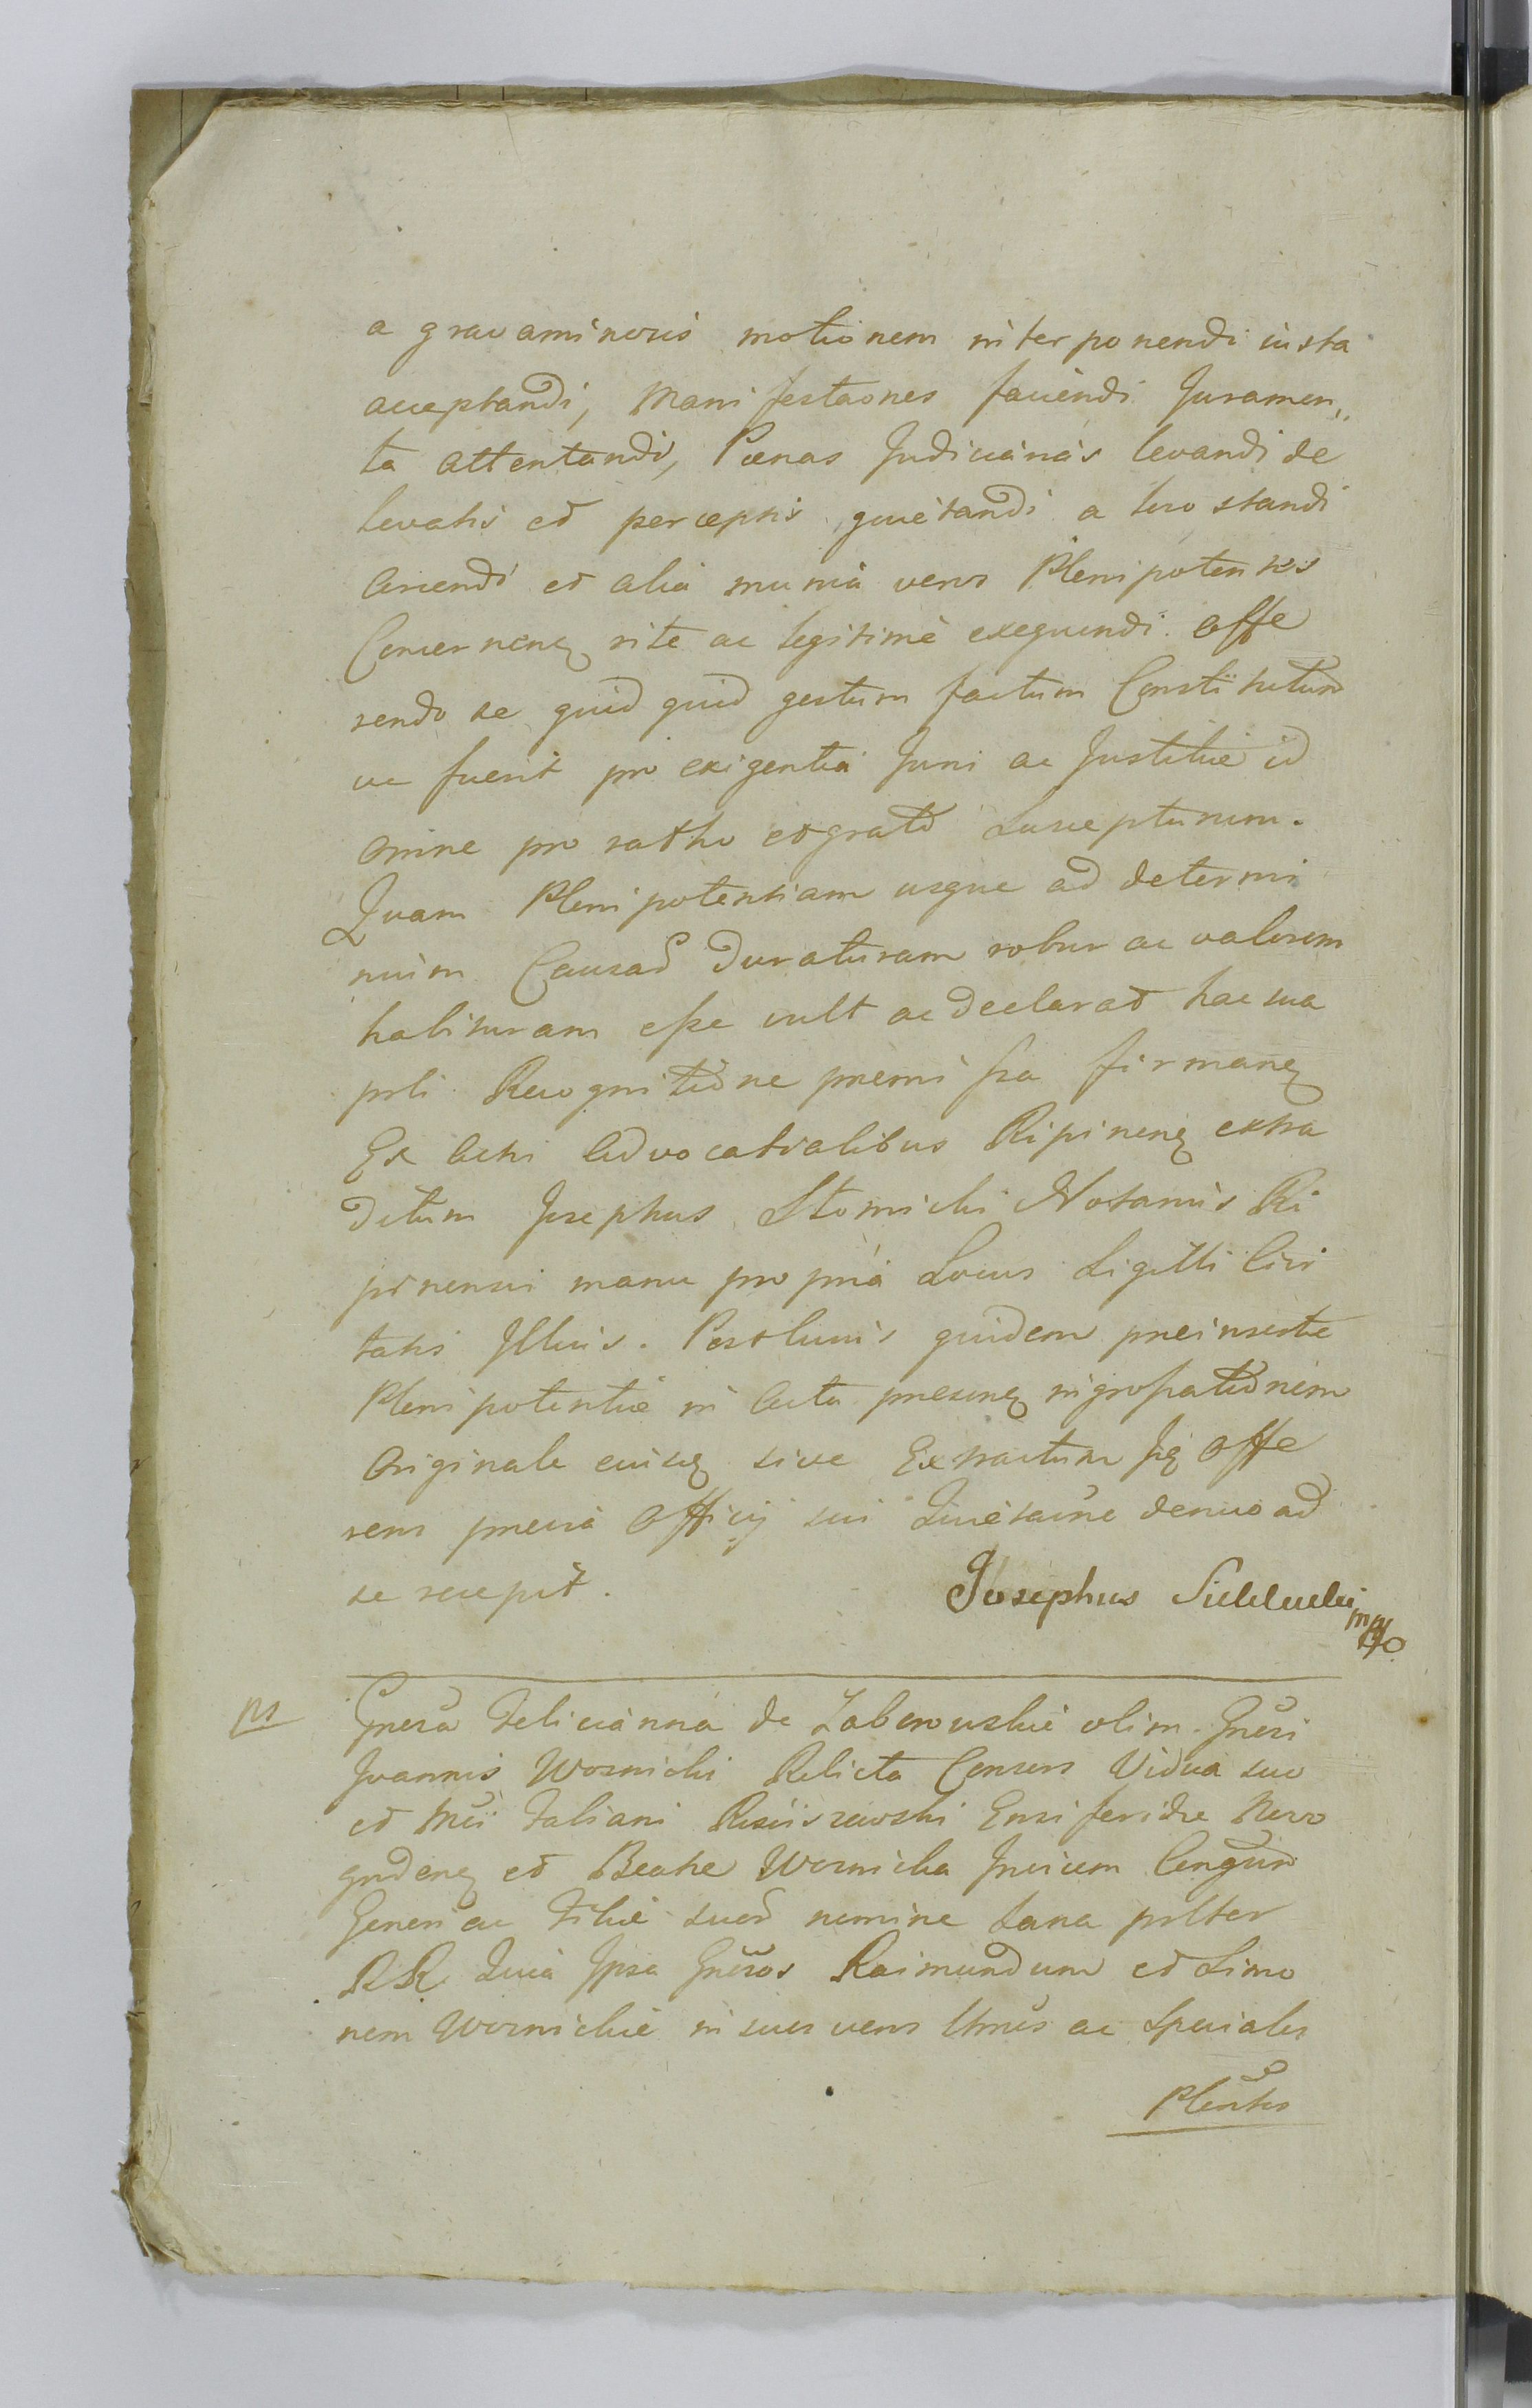 a gravaminosis motionem interponendi iusta
acceptandi, Manifestaones faciendi Juramen„
ta attentandi, Pœnas Judicianas levandi de
levatis et perceptis quietandi a loro standi
Ariendi et alia munia veros Plenipotentes
Concernen rite ac legitime exequendi. Offe
rendo se quid quid gestum factum Constitutum
ve fuerit pro exigentia Juris ac Justitiæ id
omne pro ratho et grato suscepturum.
Quam Plenipotentiam usque ad determi
nuim Causae duraturam robur ac valorem
habituram esse vult ac declarat hac sua
pnli Recognitione premissa firman
Ex Actis Advocatialibus Ripinen extra
ditum Josephus Słomicki Notarius Ri
pinensis manu propria Locus Sigilli Civi
tatis Illius. Post cuius quidem preinserte
Plenipotentiæ in Acta presen ingrossationem
Originale eiusq sive Extractum Jq Offe
rens previa Officij sui Quietaone denuo ad
se recepit.
Josephus mppo
ps Gnesa Felicianna de Zaborowskie olim Gnesi
Joannis Woznicki Relicta Consors Vidua suo
et Mci Fabiani Ensiferidæ Novo
gnden et Beatæ Woznicka Invicem Congum
Generi ac Filiæ suae nomine sana pnlter
RR. Quia Ipsa Gnesos Raimundum et Simo
nem Woznickie in suos veros ltmos ac Speciales
Plentes